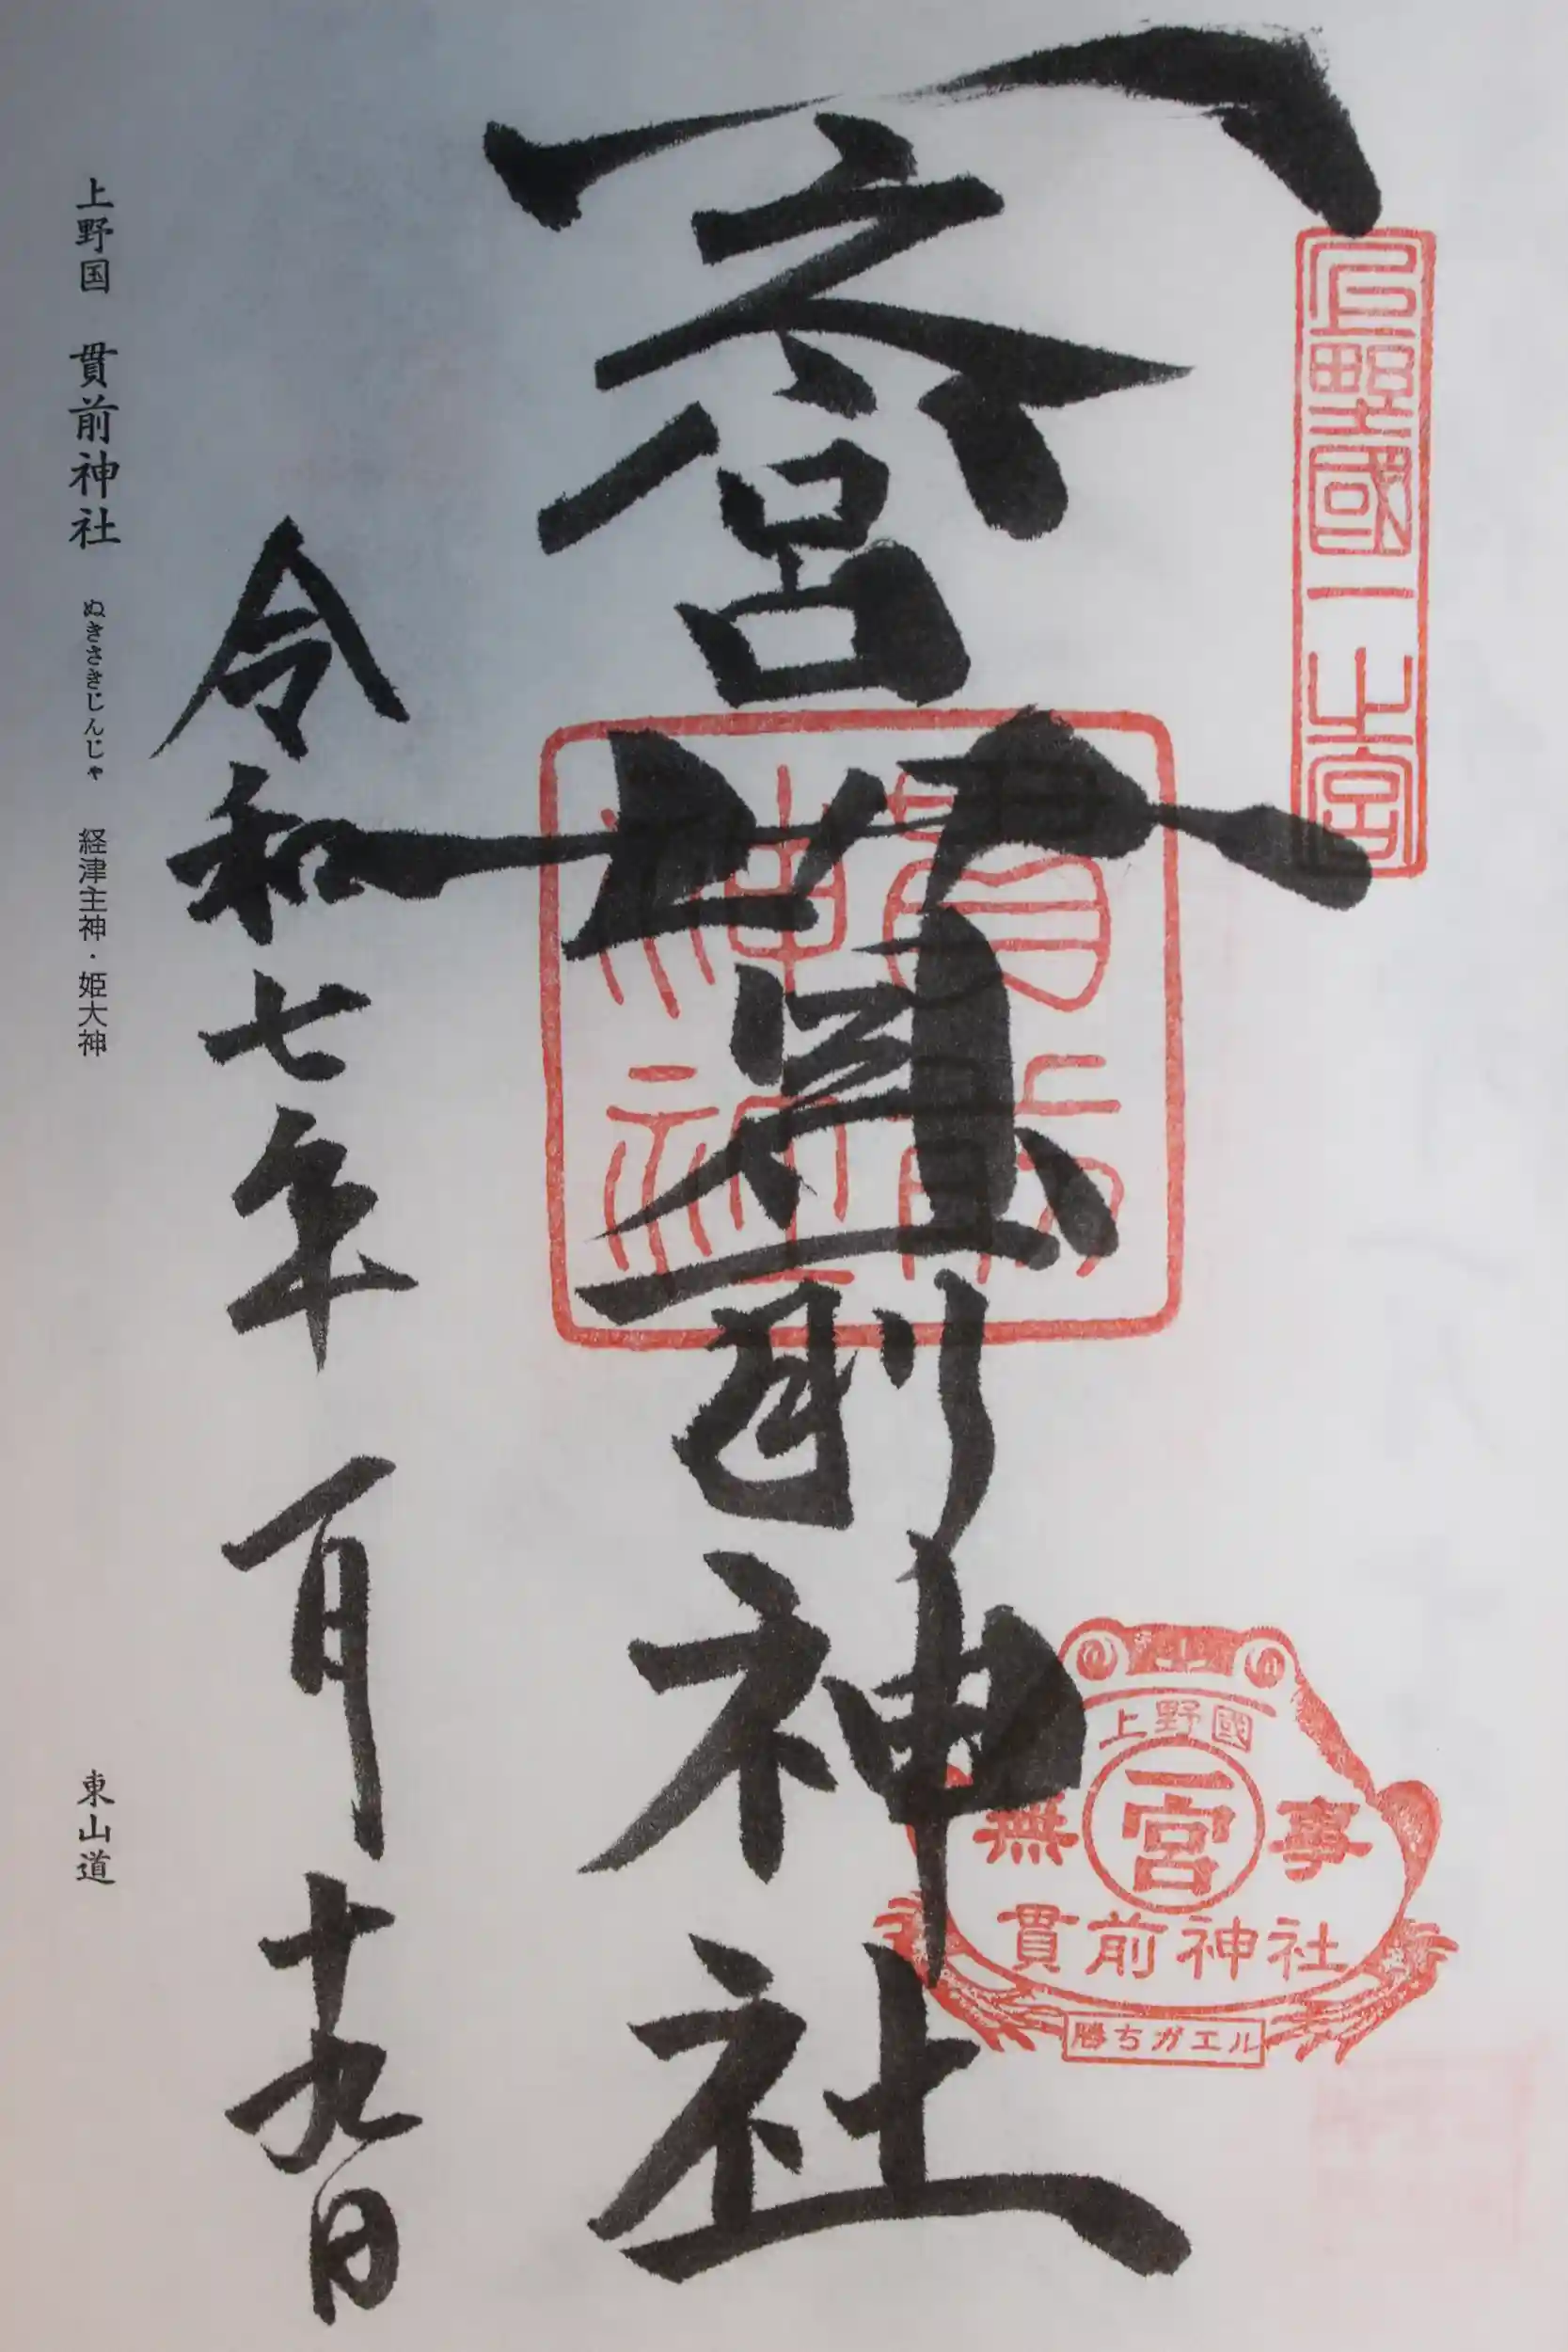 上野國一之宮
一之宮貫前神社
貫前神社
上野國
一宮
無事
貫前神社
勝ちガエル
令和七年一月十九日
上野国 貫前神社 ぬきさきじんじゃ 経津主神・姫大神 東山道